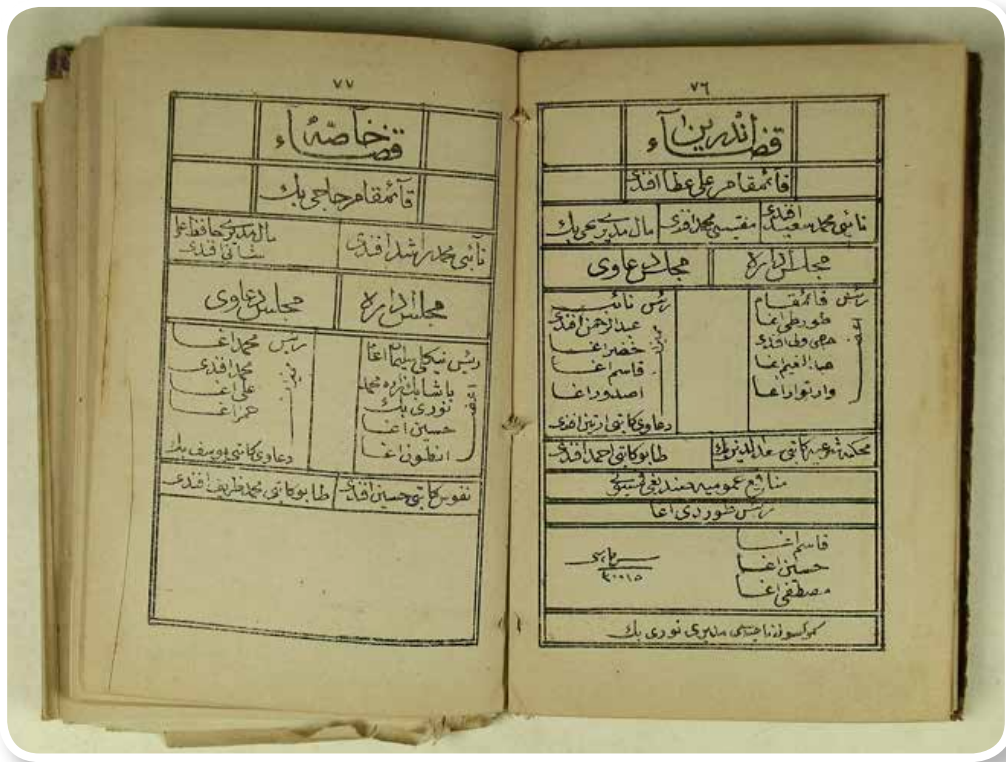 ٧٦
قضاء اندرين
قائمقام على عطا افندى
نائبى محمد سعيد افندى مفتيسى محمد افندى مال مديرى يحيى بك
مجلس اداره مجلس دعاوى
رئيس قائمقام
طورطى اغا
حاجى ولى افندى
عبد النعيم اغا
وارتوار اغا
اعضا
رئيس نائب
عبد الرحمن افندى
خضر اغا
قاسم اغا
اصدور اغا
مميزان
دعاوى كاتبى ارتين افندى
محكمه شرعيه كاتبى سعد الدين بك طابو كاتبى احمد افندى
منافع عموميه صندیغی قمسيونى
رئيس طوردى اغا
قاسم اغا
حسين اغا
مصطفى اغا
سرمايه سى
٣٠٠١٥
ناحيه سى مديرى نورى بك
٧٧
قضاء خاصه
قائمقام حاجى بك
نائبى محمد راشد افندى مال مديرى حافظ على
افندى
مجلس اداره مجلس دعاوى
رئيس سليمان اغا
پاشا بك زاده محمد
نورى بك
حسين اغا
انطون اغا
اعضا
رئيس محمد اغا
محمد افندى
على اغا
عمر اغا
مميزان
دعاوى كاتبى يوسف بك
نفوس كاتبى حسين افندى طابو كاتبى محمد ظريف افندى